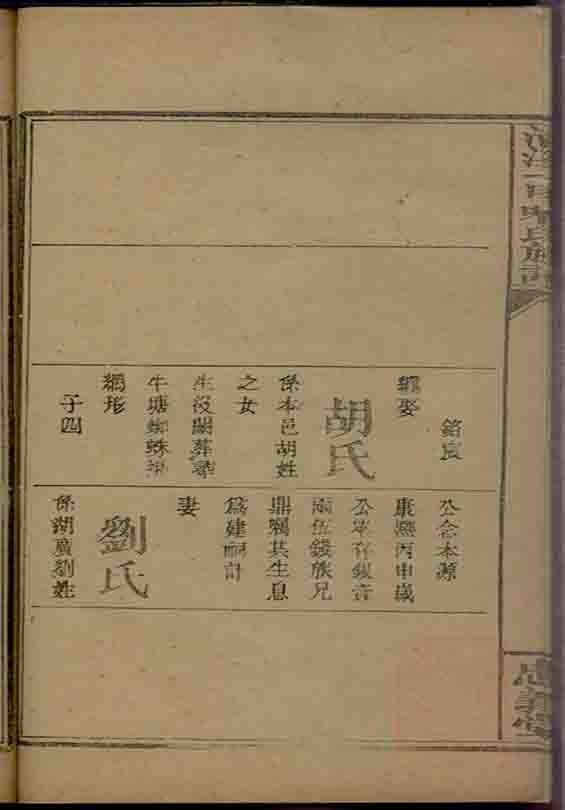 氏族譜
忠義堂
銘良
繼娶
胡氏
係本邑胡姓
之女
生沒闕葬
牛塘蜘蛛
網形
子四
公念本源
康熙丙申歲
公眾存銀壹
兩伍錢族兄
鼎矚其生息
為建嗣計
妻
劉氏
係湖廣劉姓